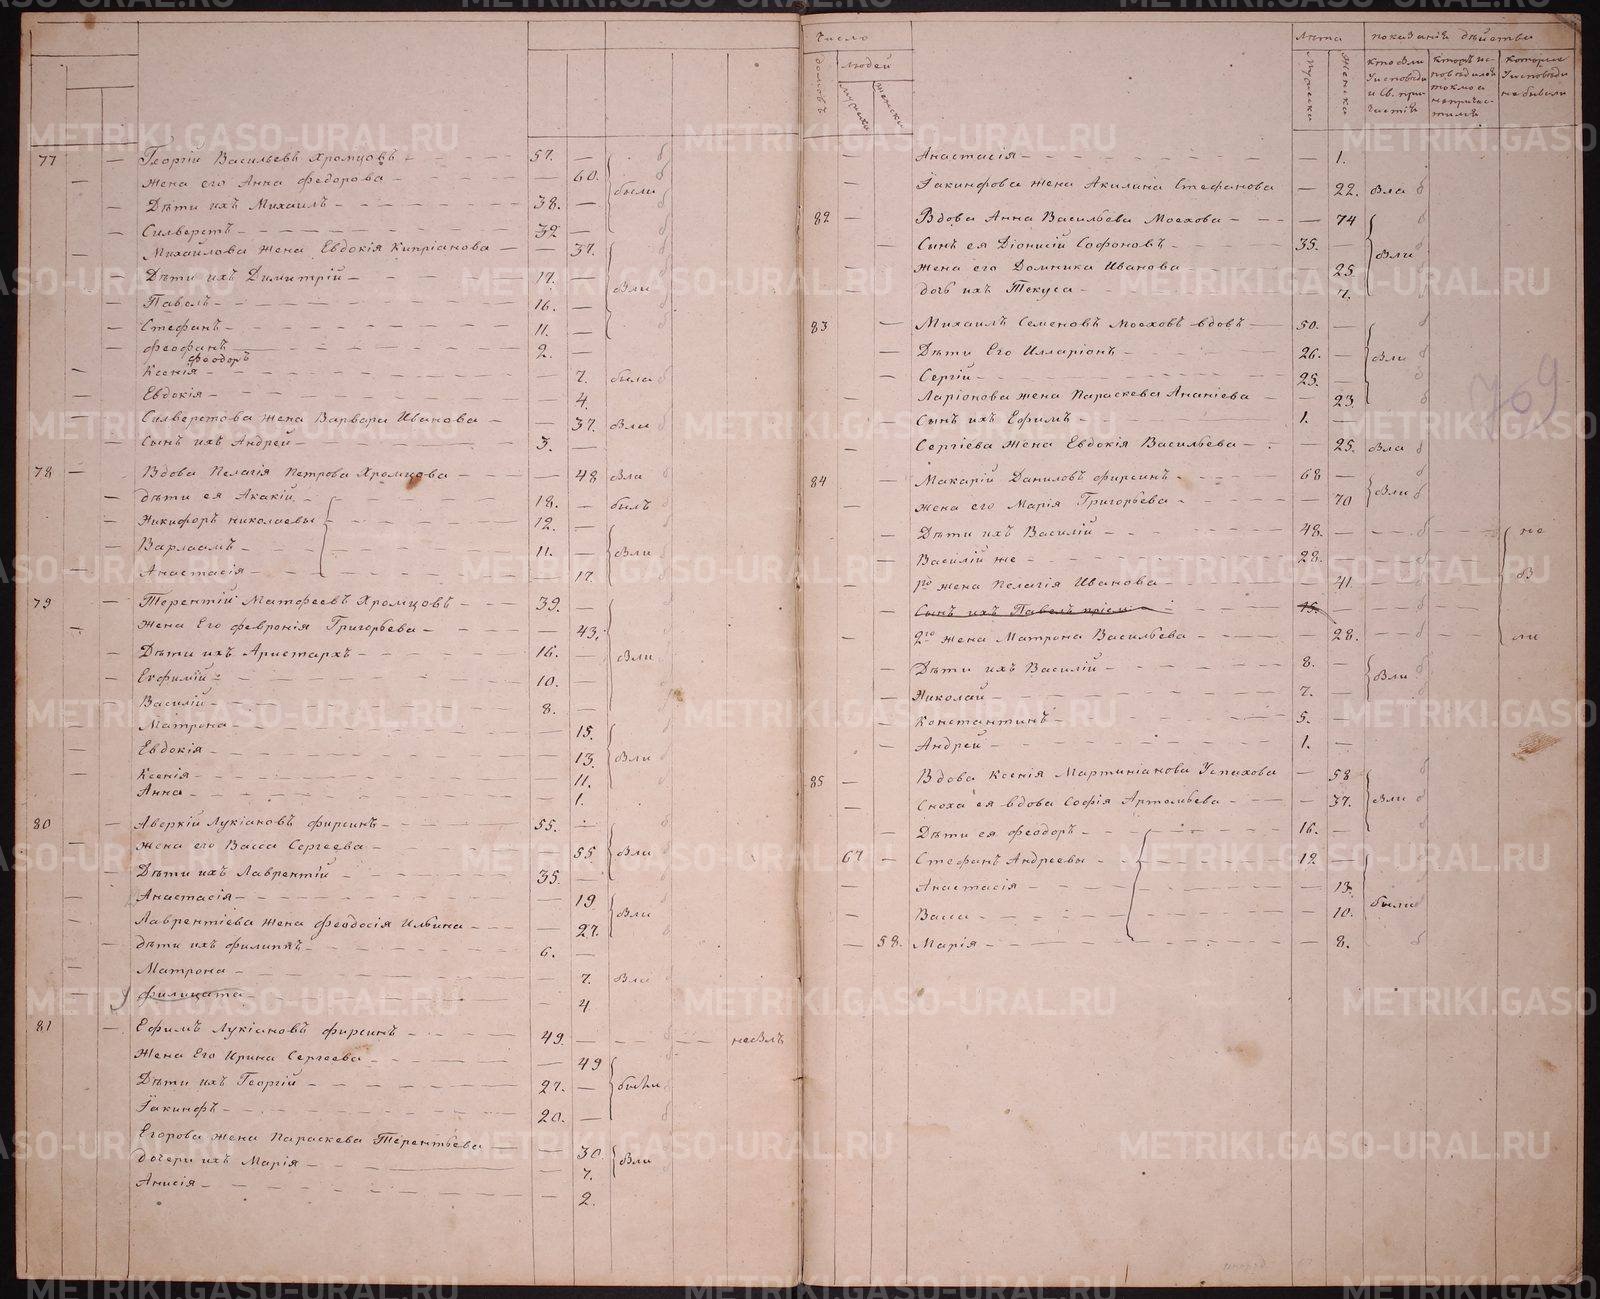 77 Георгій Васильевъ Хромцовъ 57.
жена его Анна Федорова 60. были
Дѣти ихъ Михаилъ 38.
Силверстъ 32
Михайлова жена Евдокія Кипріанова 37.
Дѣти ихъ Димитрій 17. Бли
Павелъ 16.
Стефанъ 11.
Феофанъ 2.
Феодоръ
Ксенія 7. была
Евдокія 4.
Силверстова жена Варвара Иванова 37. Бли
Сынъ ихъ Андрей 3.
78 Вдова Пелагія Петрова Хромцова 48 Бла
Дѣти ея Акакій 18. былъ
Никифоръ Николаевы 12.
Варлаамъ 11. Бли
Анастасія 17.
79 Терентій Матфеевъ Хромцовъ 39.
Жена Его Февронія Григорьева 43.
Дѣти ихъ Аристархъ 16. Бли
Евфимій 10.
Василій 8.
Матрона 15.
Евдокія 13. Бли
Ксенія 11.
Анна 1.
80 Аверкій Лукіановъ Фирсинъ 55.
Жена его Васса Сергеева 55 Бли
Дѣти ихъ Лаврентій 35.
Анастасія 19
Лаврентіева жена Феодосія Ильина 27. Бли
Дѣти ихъ Филипъ 6.
Матрона 7. Бла
Филицата 4
81 Ефимъ Лукіановъ Фирсинъ 49. небылъ
Жена Его Ирина Сергеева 49
Дѣти ихъ Георгій 27. были
Іакинфъ 20.
Егорова жена Параскева Терентьева 30.
дочери ихъ Марія 7. Бли
Анисія 2.
Число Лѣта показаніе дѣйства
домовъ людей мужеска женска мужеска женска
кто были у исповѣди и Св. причастія
которіе исповѣдались токмо а непричастились
которые у исповѣди небывали
Анастасія 1.
Іакинфова жена Акилина Стефанова 22. Бла
82 Вдова Анна Васильева Моехова 74
Сынъ ея Діонисій Софоновъ 35. Бли
жена его Домника Иванова 25.
дочь ихъ Текуса 7.
83 Михаилъ Семеновъ Моеховъ вдовъ 50.
Дѣти Его Илларіонъ 26. Бли
Сергій 25.
Ларіонова жена Параскева Ананіева 23.
Сынъ ихъ Ефимъ 1.
Сергіева жена Евдокія Васильева 25. Бла
84 Макарій Даниловъ Фирсинъ 68
жена его Марія Григорьева 70 Бли
Дѣти ихъ Василій 48. не
Василій же 28.
1го жена Пелагія Иванова 41. б
Сынъ ихъ Павелъ пріем 15.
2го жена Матрона Васильева 28. ли
Дѣти ихъ Василій 8. Бли
Николай 7.
Константинъ 5.
Андрей 1.
769
85 Вдова Ксенія Мартиніанова Успихова 58
Сноха ея вдова Софія Артемьева 37. Бли
Дѣти ея Феодоръ 16.
67 Стефанъ Андреевы 12
Анастасія 13.
Васса 10. были
58. Марія 8.
METRIKI.GASO-URAL.RU